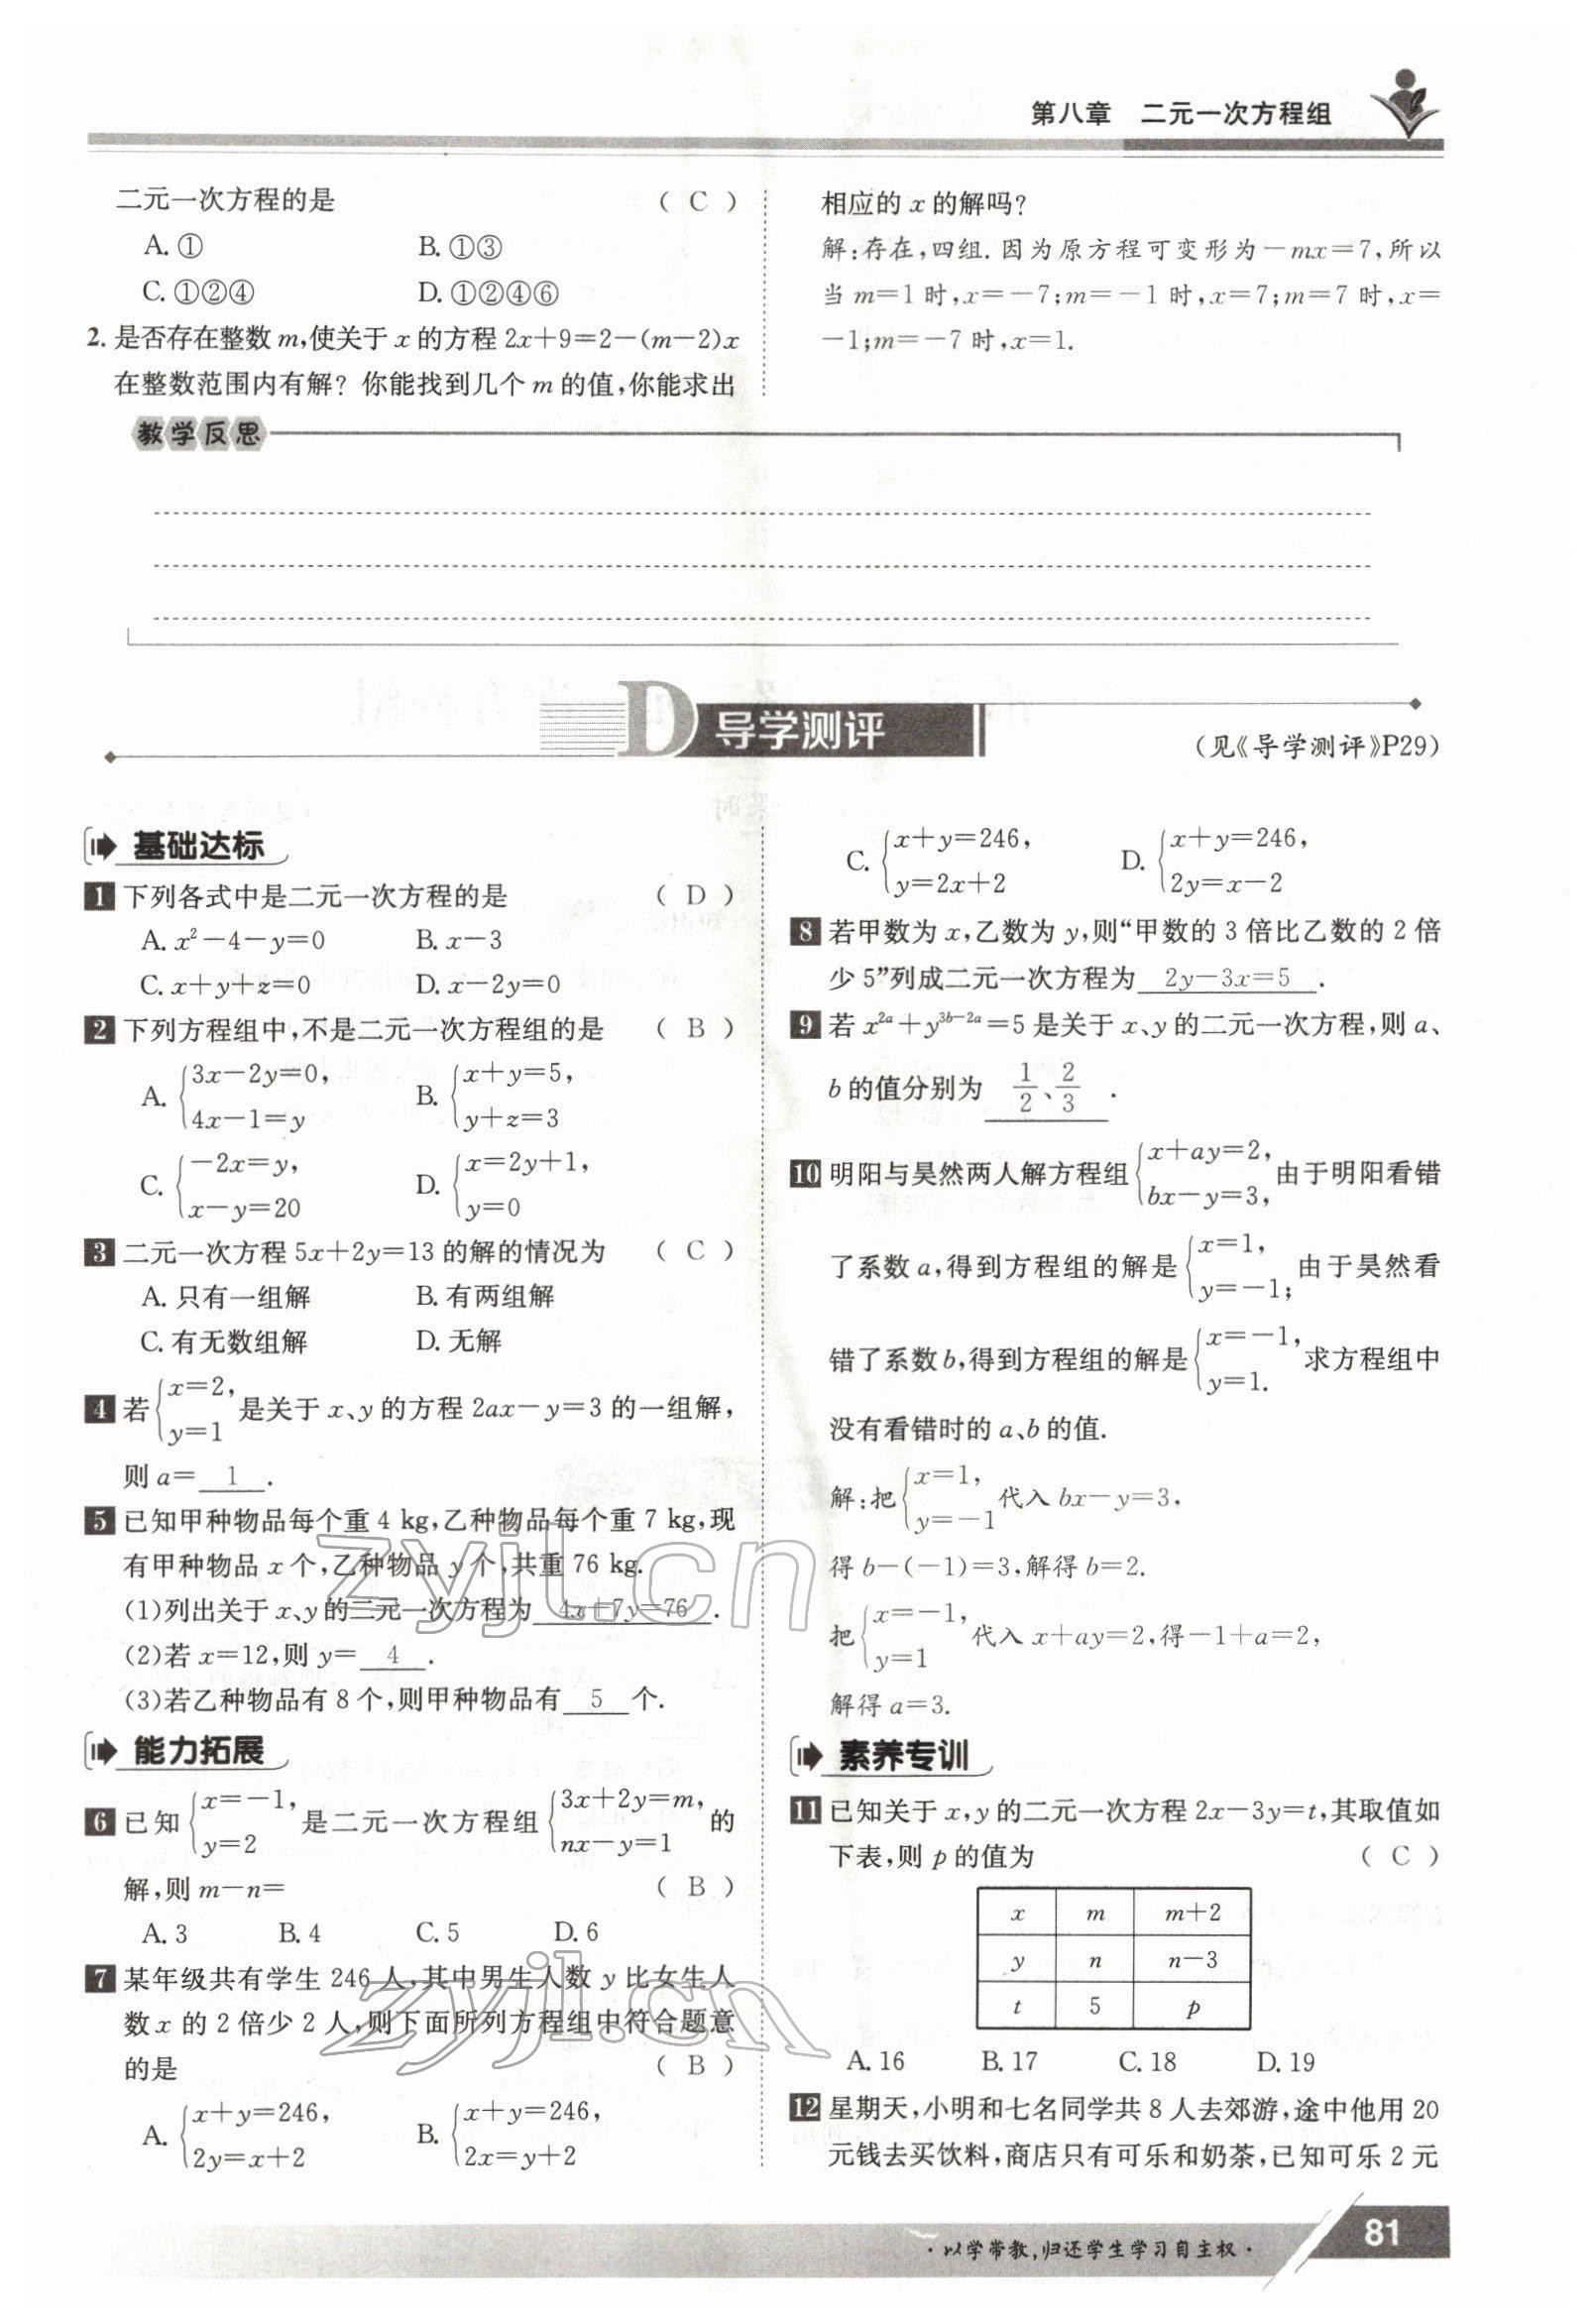 第八章 二元一次方程组
二元一次方程的是 ( C )
A. ① B. ①③
C. ①②④ D. ①②④⑥
2. 是否存在整数 m,使关于 x 的方程 2x+9=2-(m-2)x
在整数范围内有解? 你能找到几个 m 的值,你能求出
相应的 x 的解吗?
解:存在,四组. 因为原方程可变形为-mx=7,所以
当 m=1 时,x=-7;m=-1 时,x=7;m=7 时,x=
-1;m=-7 时,x=1.
教学反思
D 导学测评
(见《导学测评》P29)
基础达标
1 下列各式中是二元一次方程的是 ( D )
A. x²-4-y=0 B. x-3
C. x+y+z=0 D. x-2y=0
2 下列方程组中,不是二元一次方程组的是 ( B )
A. {3x-2y=0, 4x-1=y B. {x+y=5, y+z=3
C. {-2x=y, x-y=20 D. {x=2y+1, y=0
3 二元一次方程 5x+2y=13 的解的情况为 ( C )
A. 只有一组解 B. 有两组解
C. 有无数组解 D. 无解
4 若{x=2, y=1 是关于 x、y 的方程 2ax-y=3 的一组解,
则 a= 1 .
5 已知甲种物品每个重 4 kg,乙种物品每个重 7 kg,现
有甲种物品 x 个,乙种物品 y 个,共重 76 kg.
(1)列出关于 x、y 的二元一次方程为 4x+7y=76 .
(2)若 x=12,则 y= 4 .
(3)若乙种物品有 8 个,则甲种物品有 5 个.
能力拓展
6 已知{x=-1, y=2 是二元一次方程组{3x+2y=m, nx-y=1 的
解,则 m-n= ( B )
A. 3 B. 4 C. 5 D. 6
7 某年级共有学生 246 人,其中男生人数 y 比女生人
数 x 的 2 倍少 2 人,则下面所列方程组中符合题意
的是 ( B )
A. {x+y=246, 2y=x+2 B. {x+y=246, 2x=y+2
C. {x+y=246, y=2x+2 D. {x+y=246, 2y=x-2
8 若甲数为 x,乙数为 y,则“甲数的 3 倍比乙数的 2 倍
少 5”列成二元一次方程为 2y-3x=5 .
9 若 x^{2a}+y^{3b-2a}=5 是关于 x、y 的二元一次方程,则 a、
b 的值分别为 1/2、2/3 .
10 明阳与昊然两人解方程组{x+ay=2, bx-y=3, 由于明阳看错
了系数 a,得到方程组的解是{x=1, y=-1; 由于昊然看
错了系数 b,得到方程组的解是{x=-1, y=1. 求方程组中
没有看错时的 a、b 的值.
解:把{x=1, y=-1 代入 bx-y=3,
得 b-(-1)=3,解得 b=2.
把{x=-1, y=1 代入 x+ay=2,得-1+a=2,
解得 a=3.
素养专训
11 已知关于 x,y 的二元一次方程 2x-3y=t,其取值如
下表,则 p 的值为 ( C )
x m m+2
y n n-3
t 5 p
A. 16 B. 17 C. 18 D. 19
12 星期天,小明和七名同学共 8 人去郊游,途中他用 20
元钱去买饮料,商店只有可乐和奶茶,已知可乐 2 元
·以学带教,归还学生学习自主权·
81
zyjl.cn
zyjl.cn